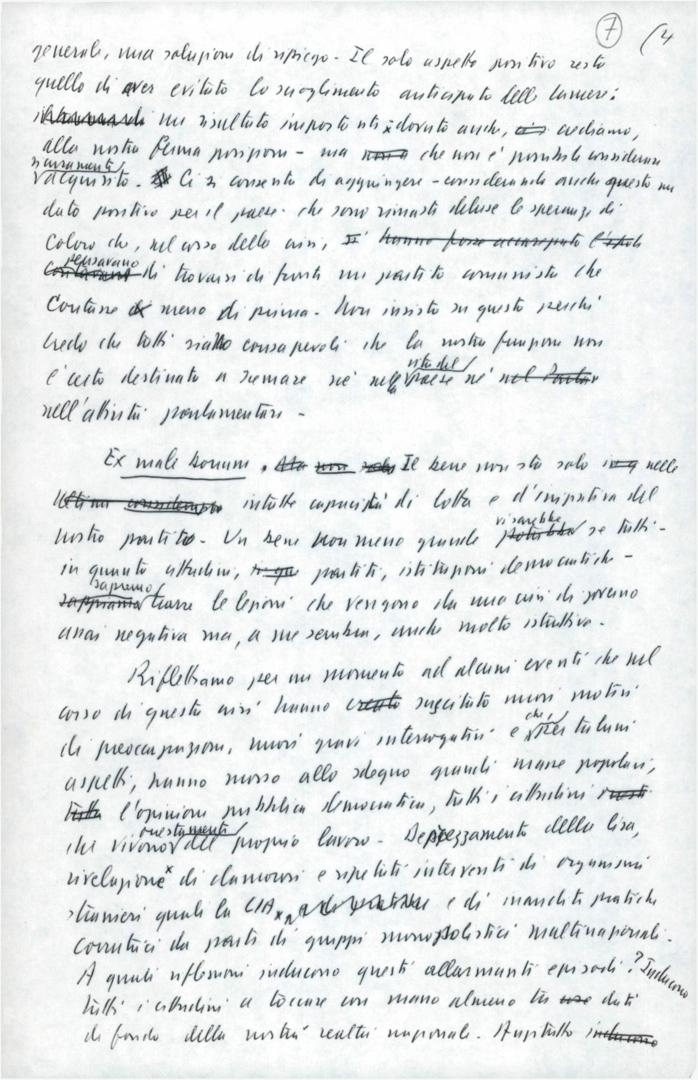 7 (4
generale, una soluzione di ripiego. Il solo aspetto positivo resta
quello di aver evitato lo scioglimento anticipato delle Camere:
un risultato importante dovuto anche, crediamo,
alla nostra ferma posizione - ma che non è possibile considerare
sicuramente
acquisito. Ci si consenta di aggiungere - considerando anche questo un
dato positivo per il paese - che sono rimaste deluse le speranze di
coloro che, nel corso della crisi, hanno
pensavano
di trovarsi di fronte un partito comunista che
contasse meno di prima. Non insisto su questo perché
credo che tutti siano consapevoli che la nostra funzione non
vita del
è certo destinata a scemare né nella paese né
nell'attività parlamentare -
Ex malo bonum. Ma non solo Il bene non sta solo nelle
intatte capacità di lotta e d'iniziativa del
nostro partito. Un bene non meno grande
vi sarebbe
potrebbe se tutti -
in quanto cittadini, partiti, istituzioni democratiche -
sapremo
sappiamo trarre le lezioni che vengono da una crisi di governo
assai negativa ma, a me sembra, anche molto istruttiva.
Riflettiamo per un momento ad alcuni eventi che nel
corso di questa crisi hanno creato suscitato nuovi motivi
che,
di preoccupazione, nuovi gravi interrogativi e per taluni
aspetti, hanno mosso allo sdegno grandi masse popolari,
tutta l'opinione pubblica democratica, tutti i cittadini
onestamente
che vivono del proprio lavoro. Deprezzamento della lira,
rivelazione di clamorosi e ripetuti interventi di organismi
stranieri quali la CIA, e di inaudite pratiche
corruttrici da parte di gruppi monopolistici multinazionali.
A quali riflessioni inducono questi allarmanti episodi? Inducono
tutti i cittadini a toccare con mano almeno tre dati
di fondo della nostra realtà nazionale. Anzitutto inducono